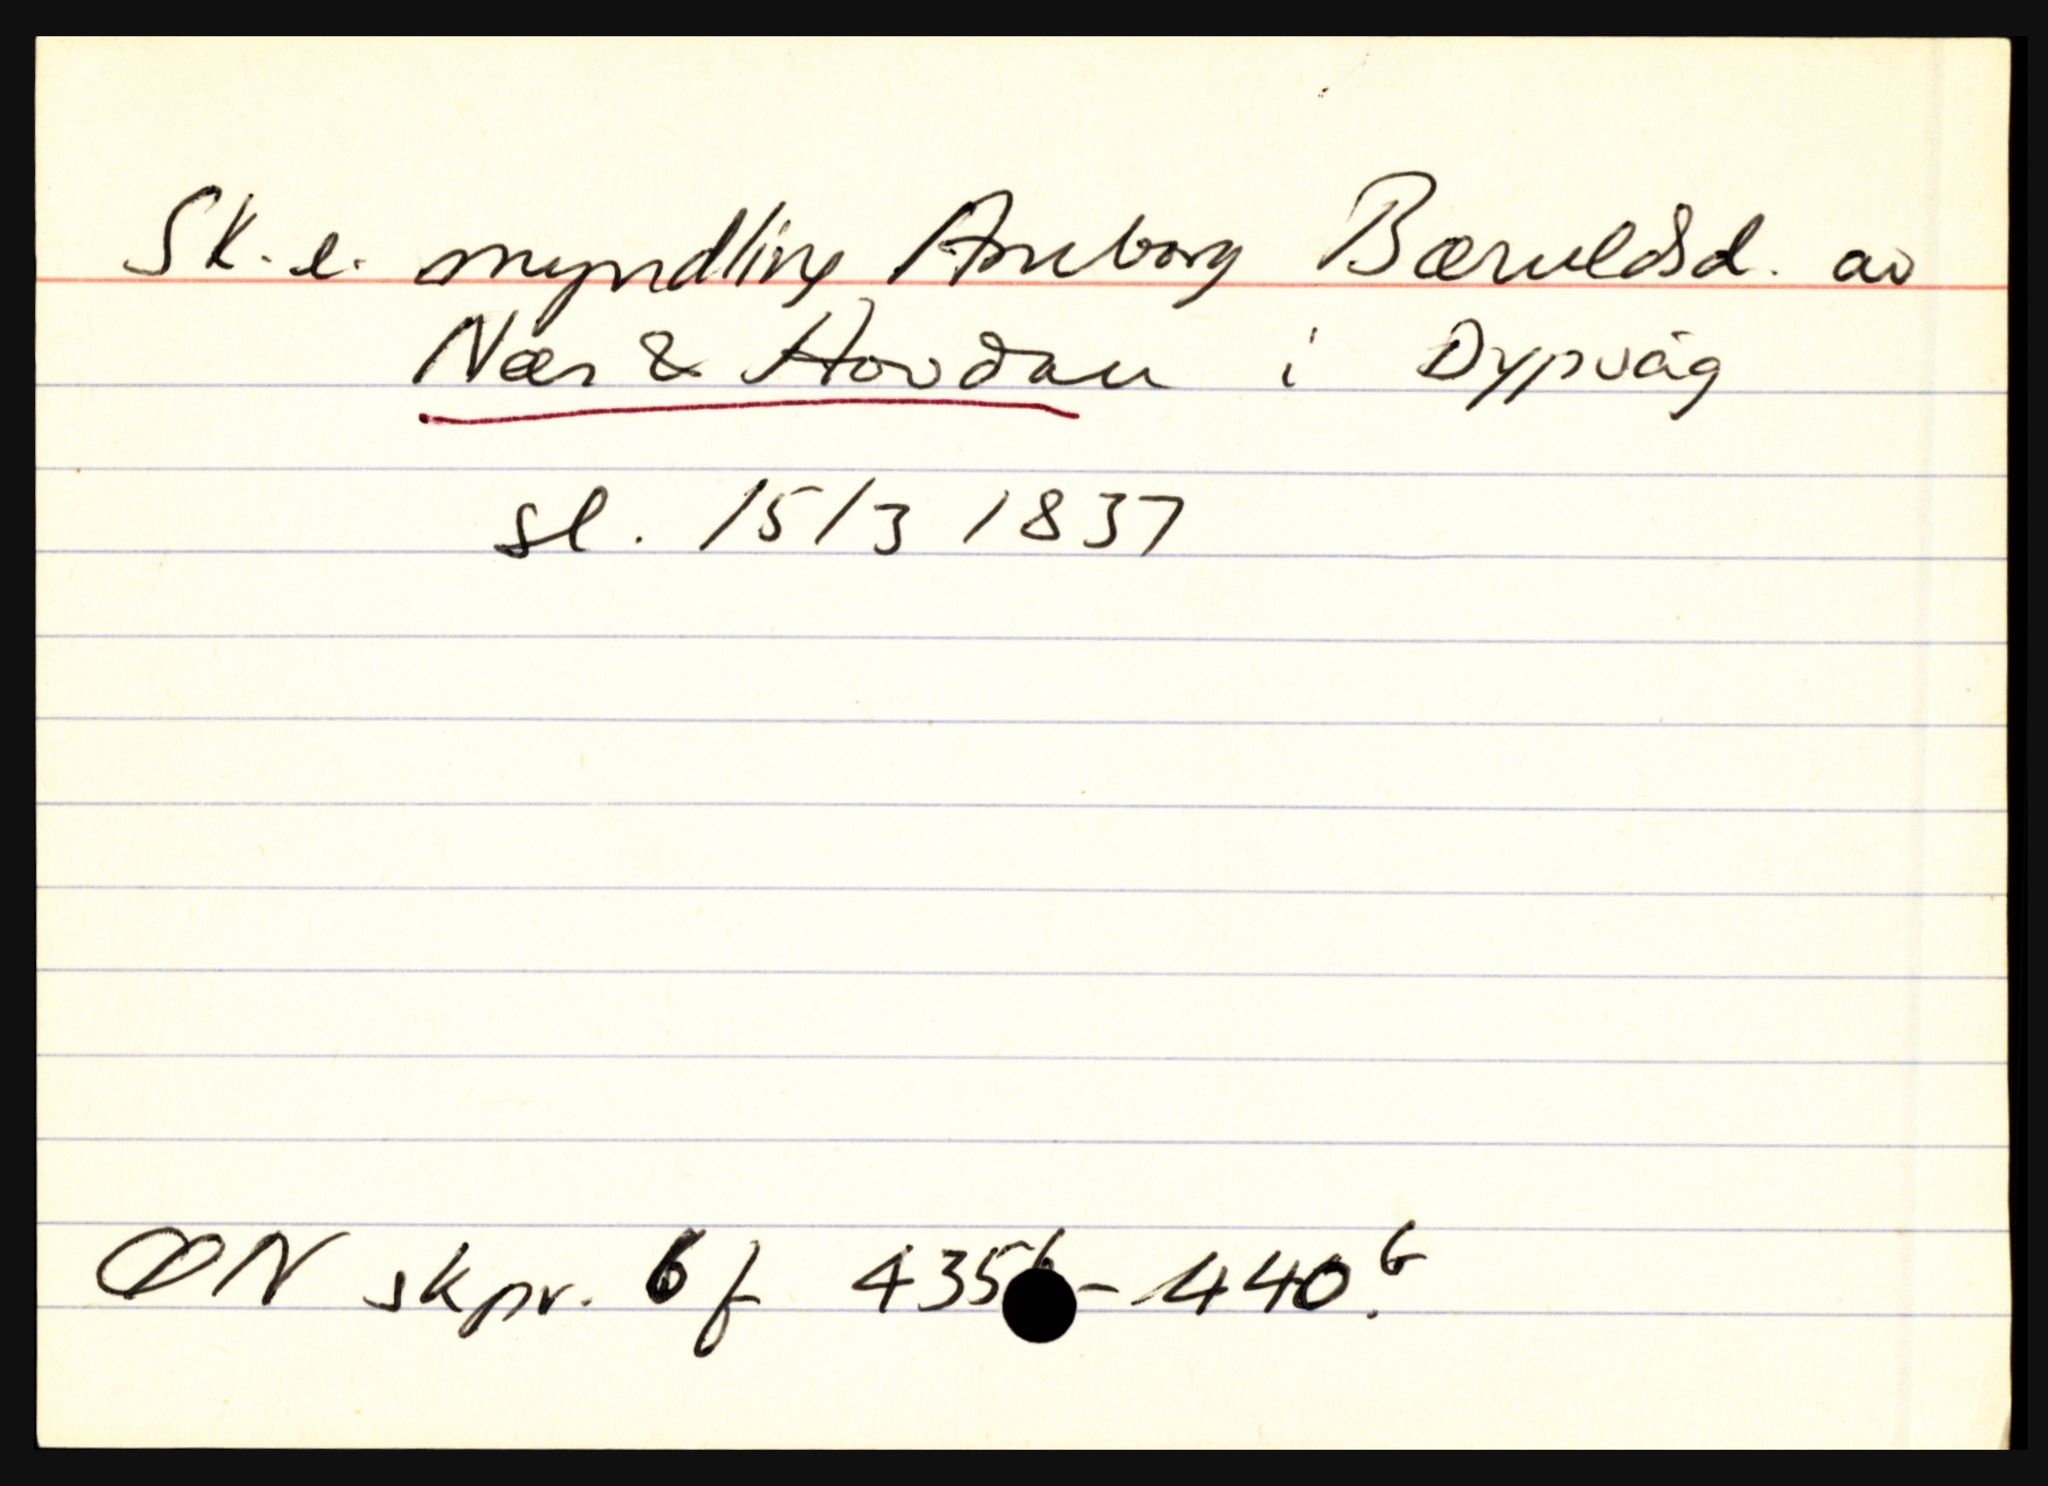 Sk. e. myndling Anneborg Bærulds d. av
Nær & Hovdan i Dypvåg
sl. 15/3 1837
ØN skpr. 6 f 435b - 440b.